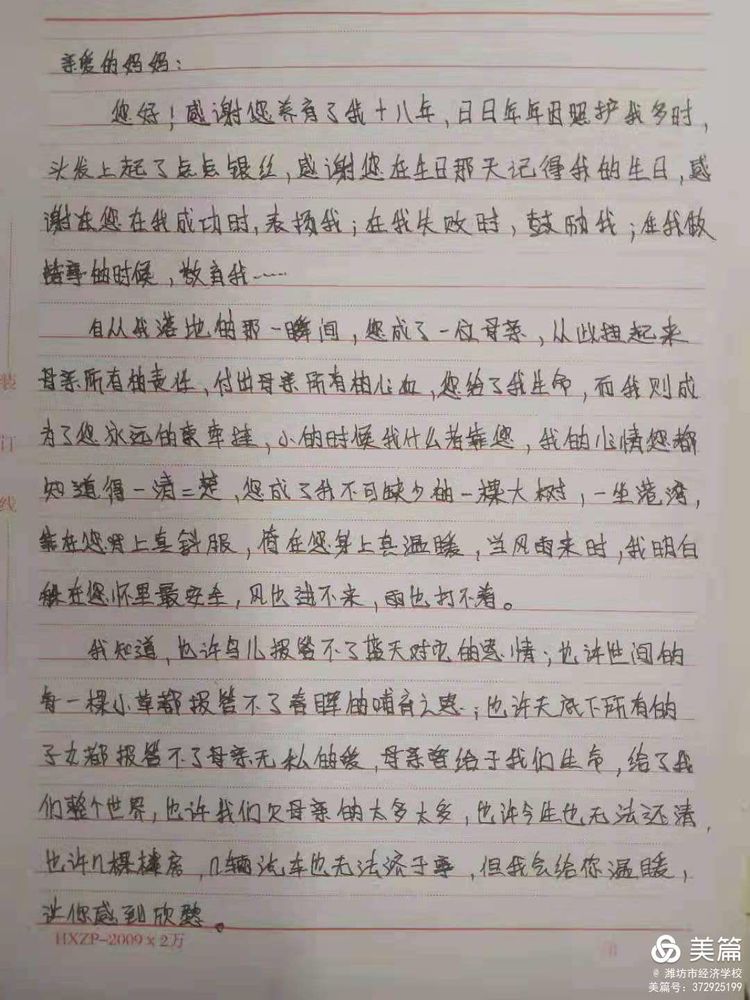 亲爱的妈妈:
您好!感谢您养育了我十八年,日日年年因照护我多时,
头发上起了点点银丝,感谢您在生日那天记得我的生日,感
谢您在我成功时,表扬我;在我失败时,鼓励我;在我做
错事的时候,教育我……
自从我落地的那一瞬间,您成了一位母亲,从此担起来
母亲所有的责任,付出母亲所有的心血,您给了我生命,而我则成
为了您永远的牵挂,小的时候我什么者靠您,我的心情您都
知道得一清二楚,您成了我不可缺少的一棵大树,一坐港湾,
靠在您肩上真舒服,倚在您身上真温暖,当风雨来时,我明白
躲在您怀里最安全,风也进不来,雨也打不着。
我知道,也许鸟儿报答不了蓝天对它的恩情;也许世间的
每一棵小草都报答不了春晖的哺育之恩;也许天底下所有的
子女都报答不了母亲无私的爱,母亲曾给于我们生命,给了我
们整个世界,也许我们欠母亲的太多太多,也许今生也无法还清,
也许几棵楼房,几辆汽车也无法济于事,但我会给你温暖,
让你感到欣慰。
装
订
线
HXZP-2009×2万
美篇
@ 潍坊市经济学校
美篇号:372925199